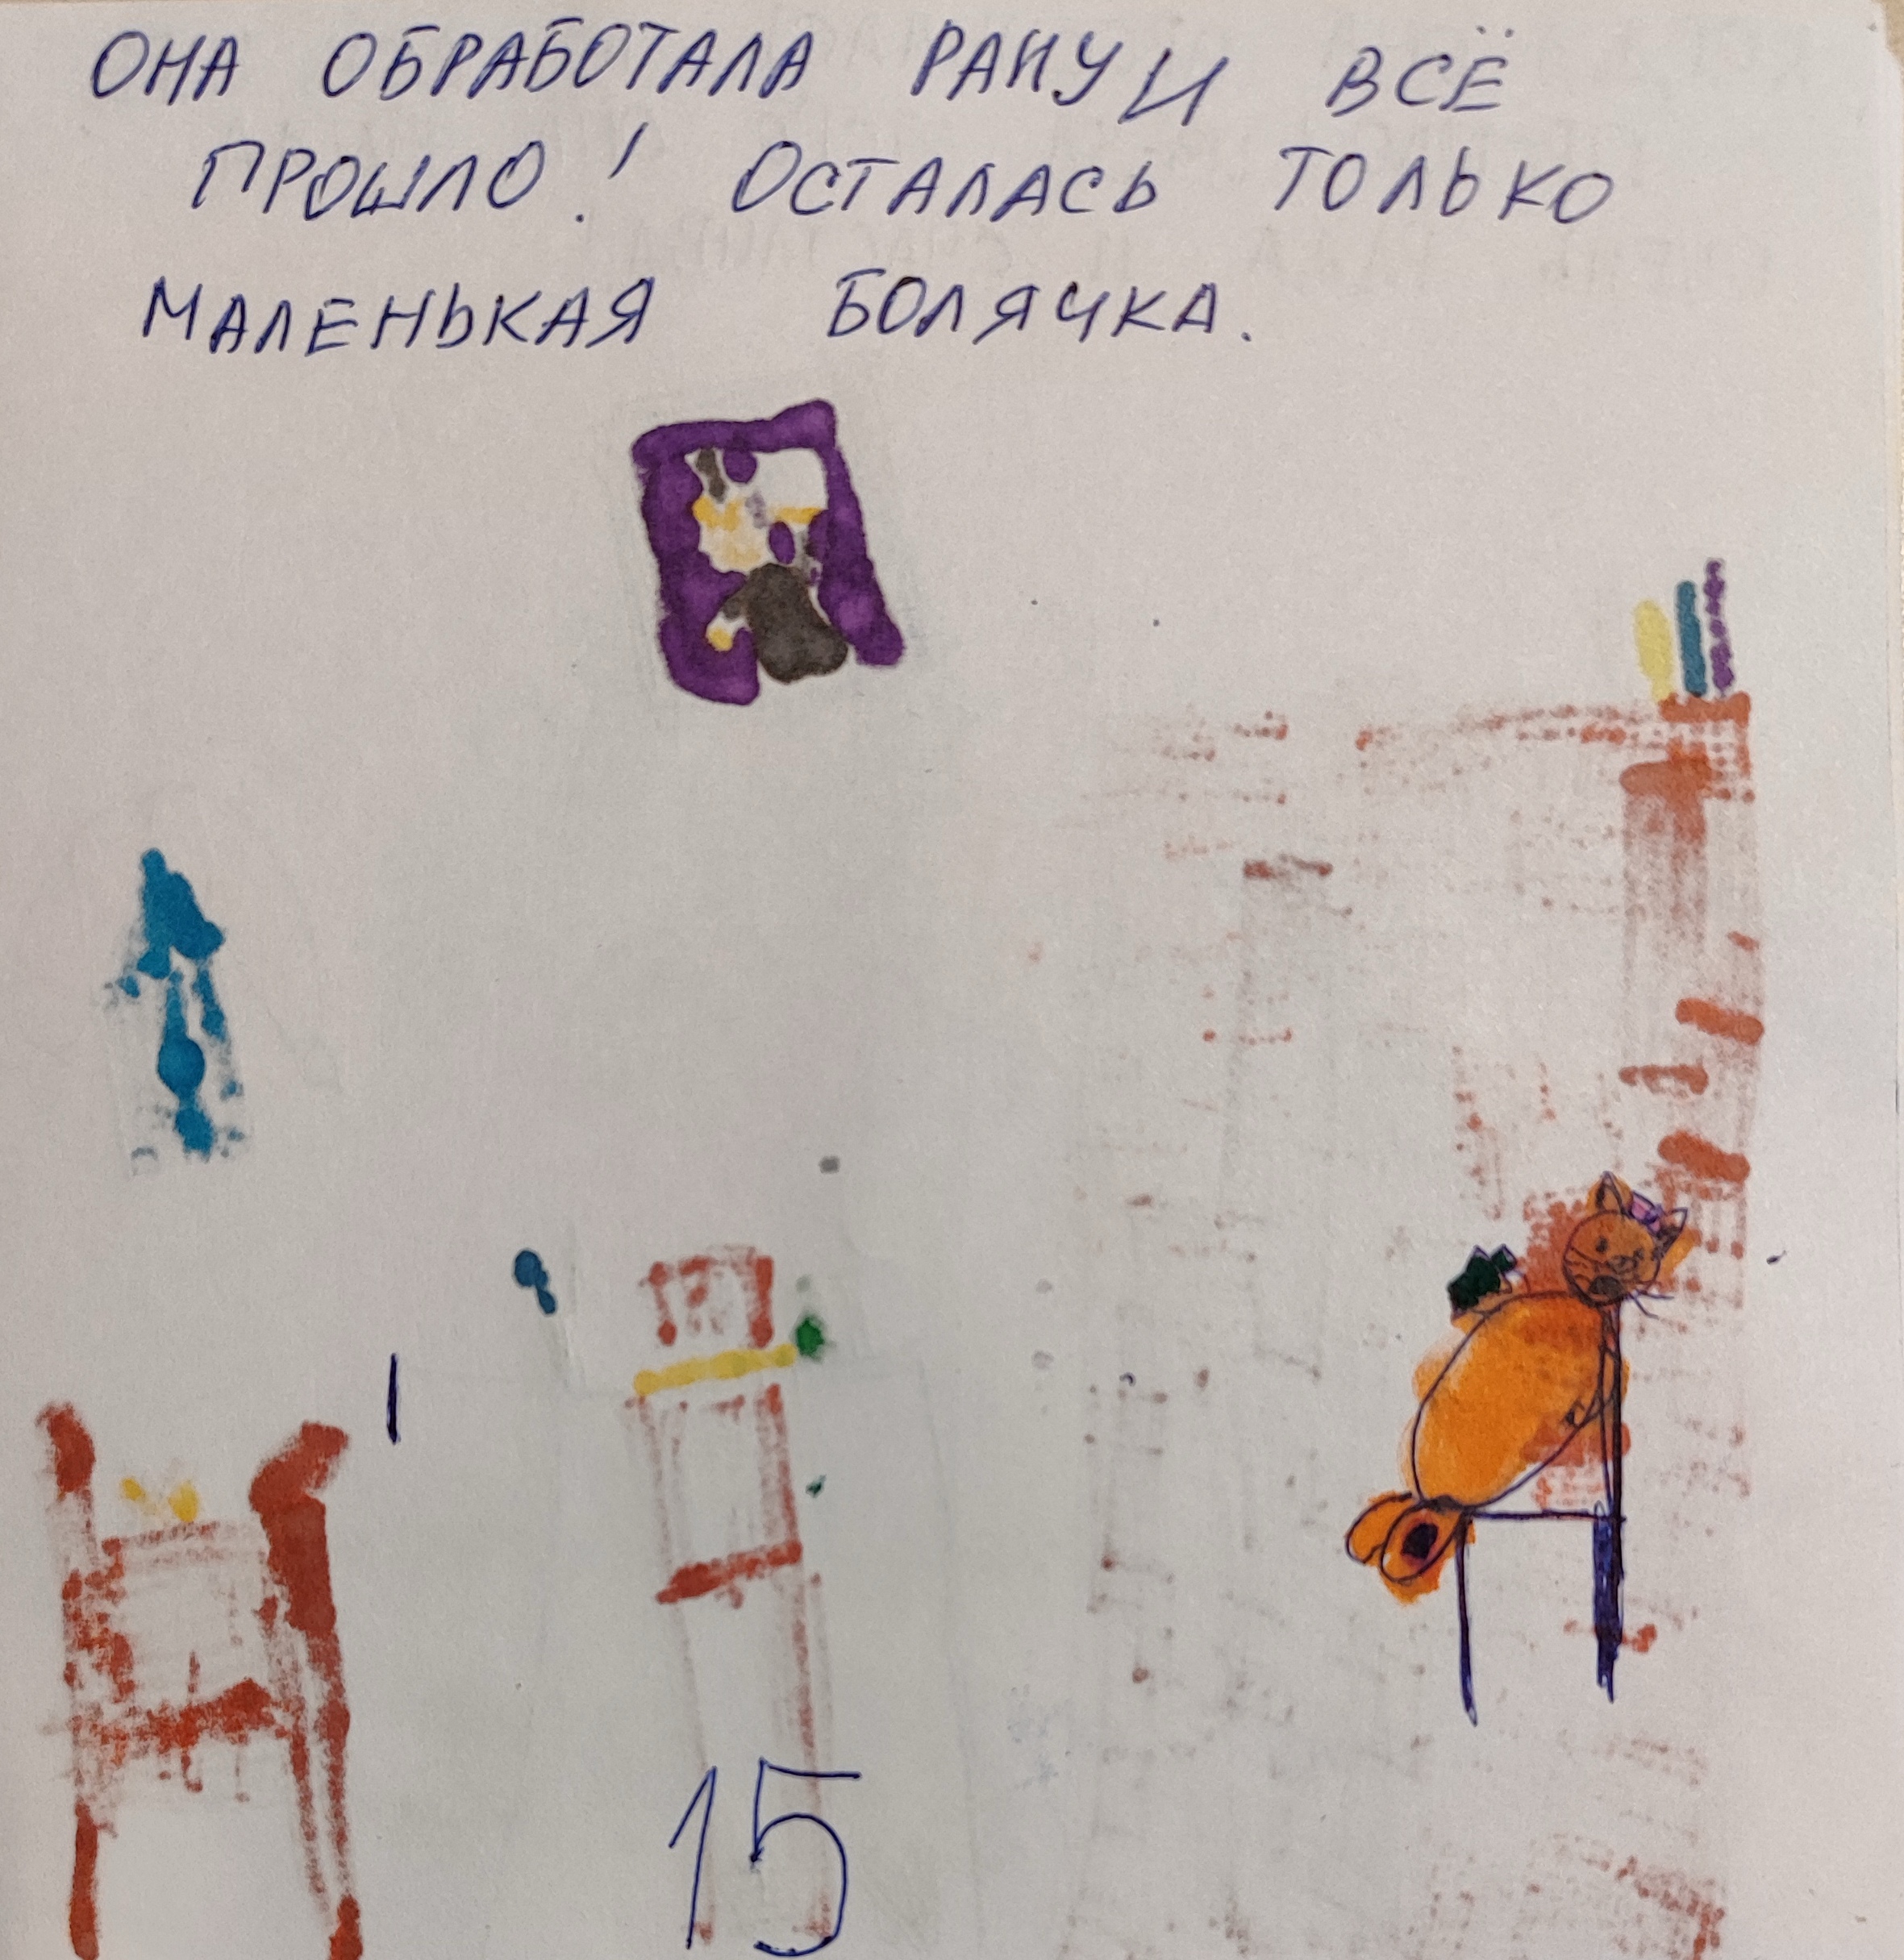 ОНА ОБРАБОТАЛА РАНУ И ВСЁ
ПРОШЛО! ОСТАЛАСЬ ТОЛЬКО
МАЛЕНЬКАЯ БОЛЯЧКА.
15